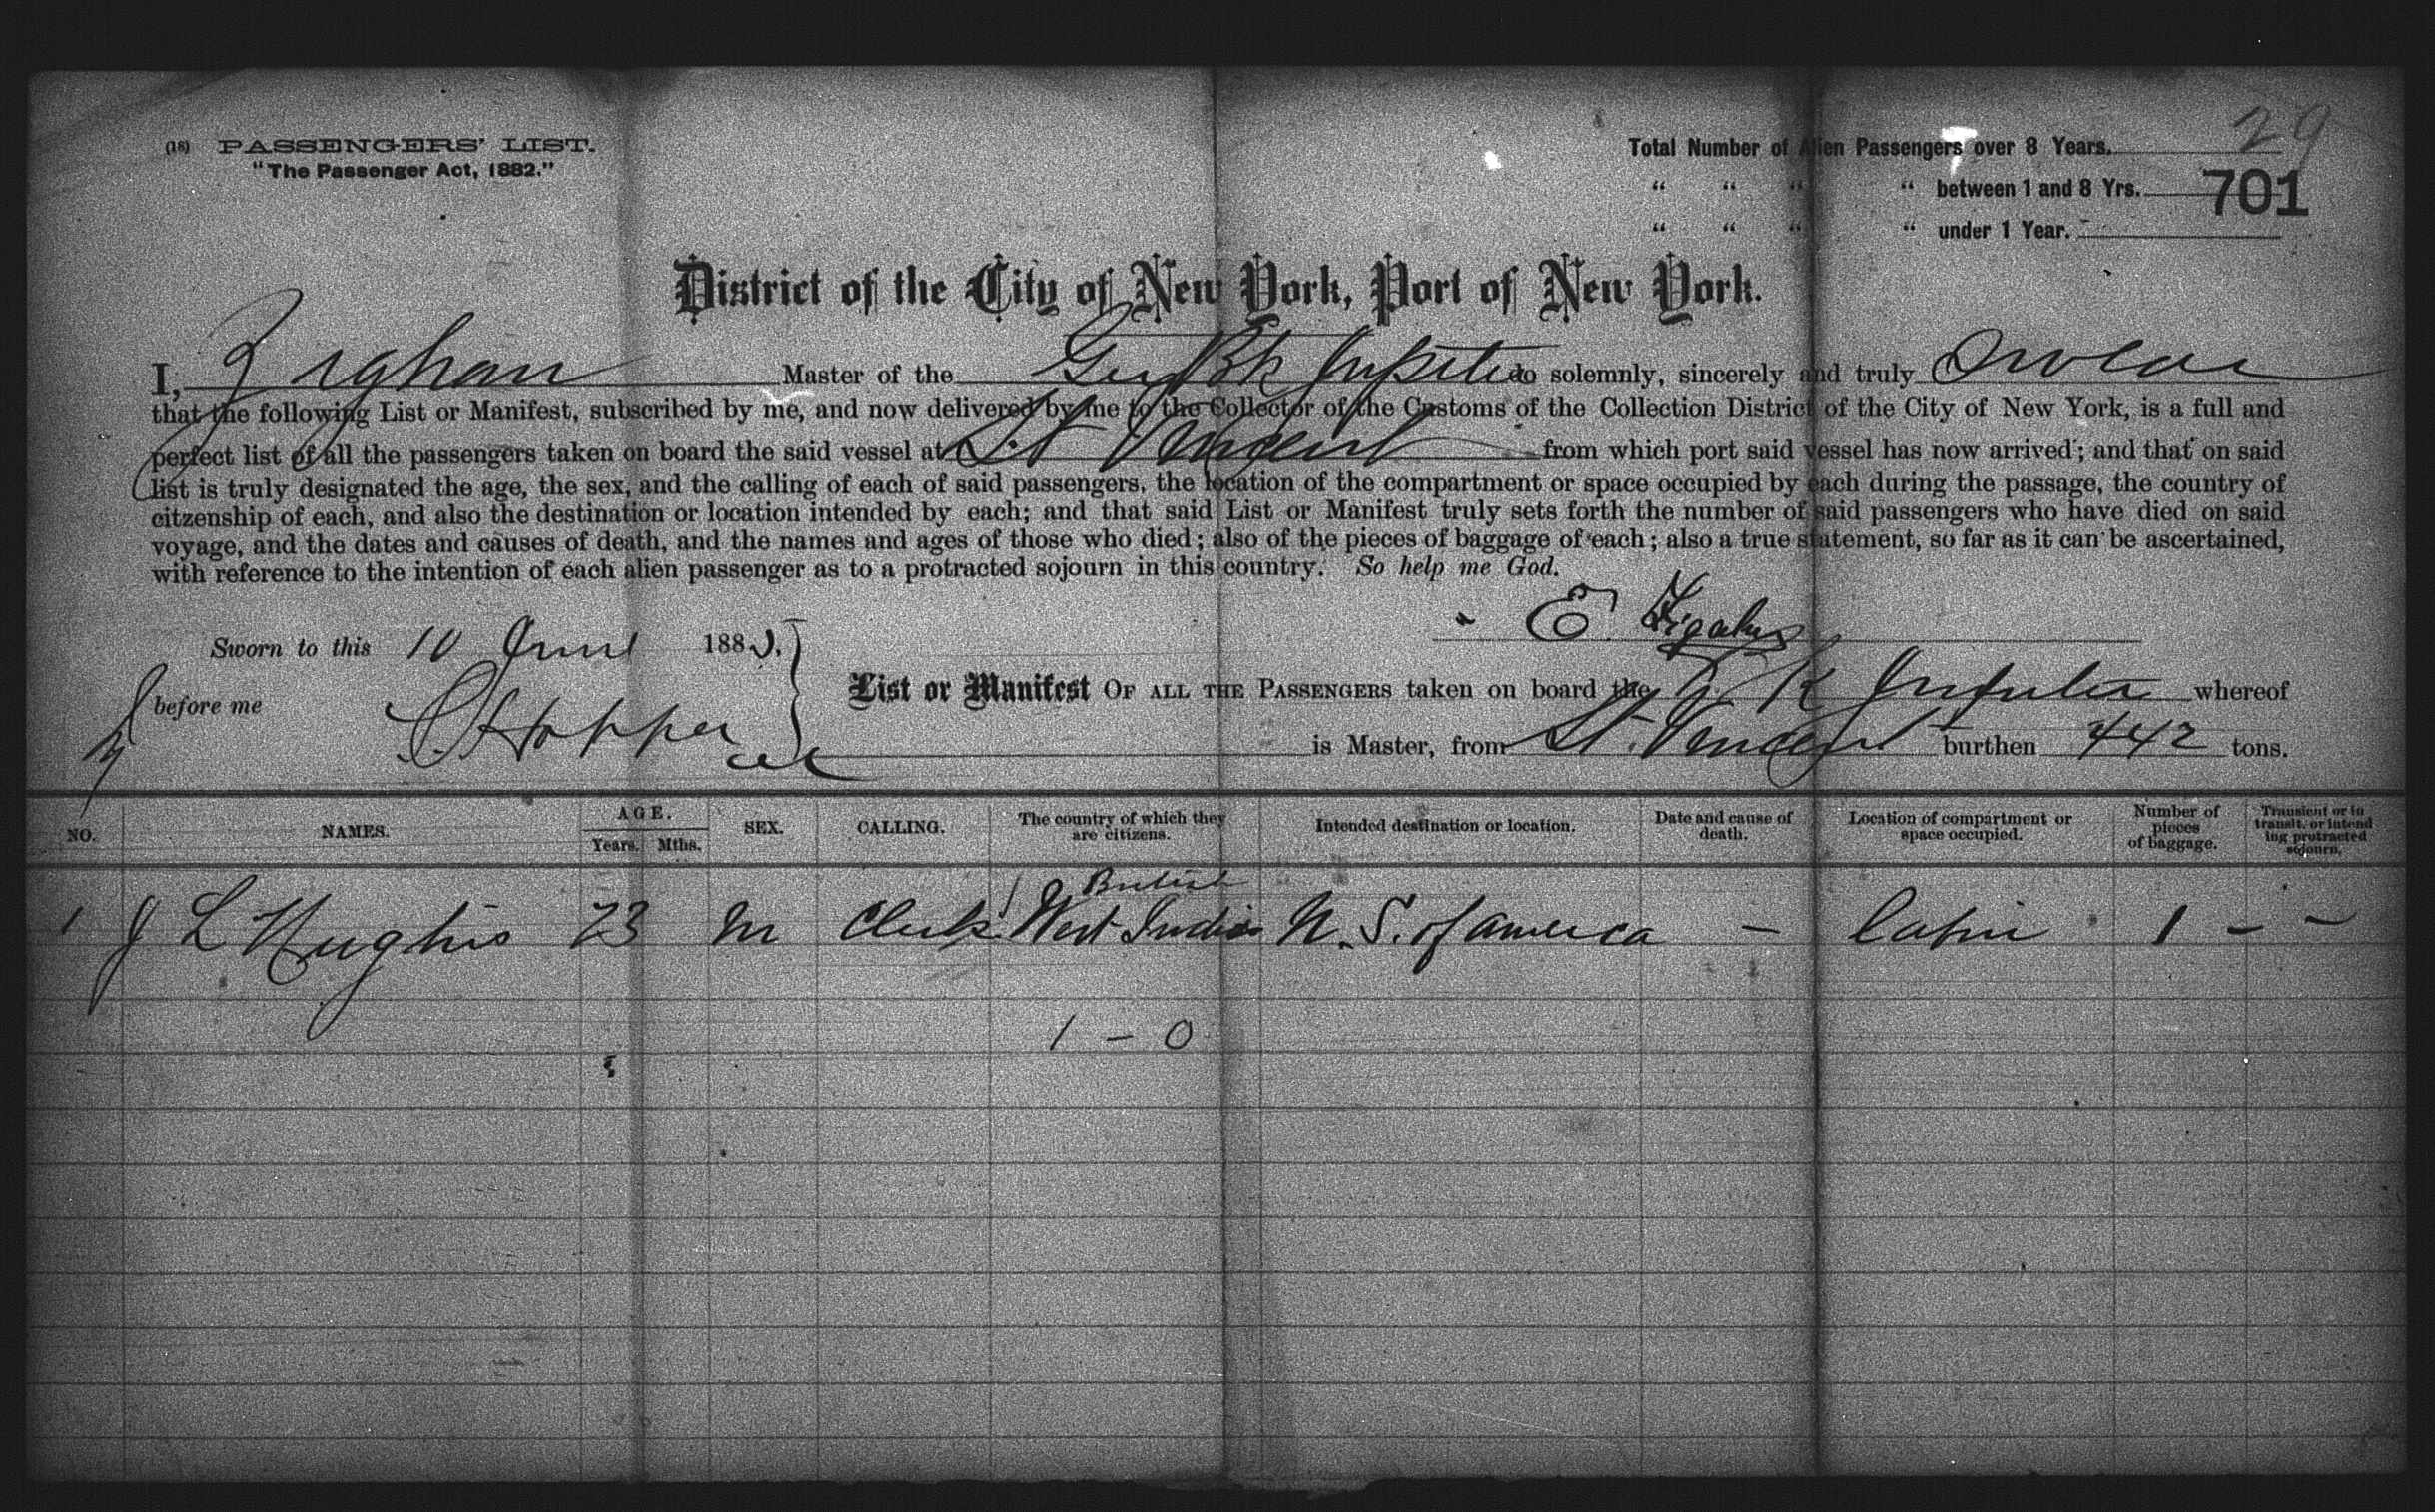 29
(18) PASSENGERS' LIST.
"The Passenger Act, 1882."
Total Number of Alien Passengers over 8 Years.
" " " " between 1 and 8 Yrs. 701
" " " " under 1 Year.
District of the City of New York, Port of New York.
I, Master of the Ger Bk Jupiter do solemnly, sincerely and truly Swear
that the following List or Manifest, subscribed by me, and now delivered by me to the Collector of the Customs of the Collection District of the City of New York, is a full and
perfect list of all the passengers taken on board the said vessel at St Vincent from which port said vessel has now arrived; and that on said
list is truly designated the age, the sex, and the calling of each of said passengers, the location of the compartment or space occupied by each during the passage, the country of
citzenship of each, and also the destination or location intended by each; and that said List or Manifest truly sets forth the number of said passengers who have died on said
voyage, and the dates and causes of death, and the names and ages of those who died; also of the pieces of baggage of each; also a true statement, so far as it can be ascertained,
with reference to the intention of each alien passenger as to a protracted sojourn in this country. So help me God.
E.
Sworn to this 10 June 188
before me Hopper
List or Manifest OF ALL THE PASSENGERS taken on board the Jupiter whereof
is Master, from St. Vincent burthen 442 tons.
NO. NAMES. AGE. Years. Mths. SEX. CALLING. The country of which they are citizens. Intended destination or location. Date and cause of death. Location of compartment or space occupied. Number of pieces of baggage. Transient or in transit, or intending protracted sojourn.
British
1 J L Hughes 23 M Clerk West Indies U. S. of America - Cabin 1 - -
1 - 0